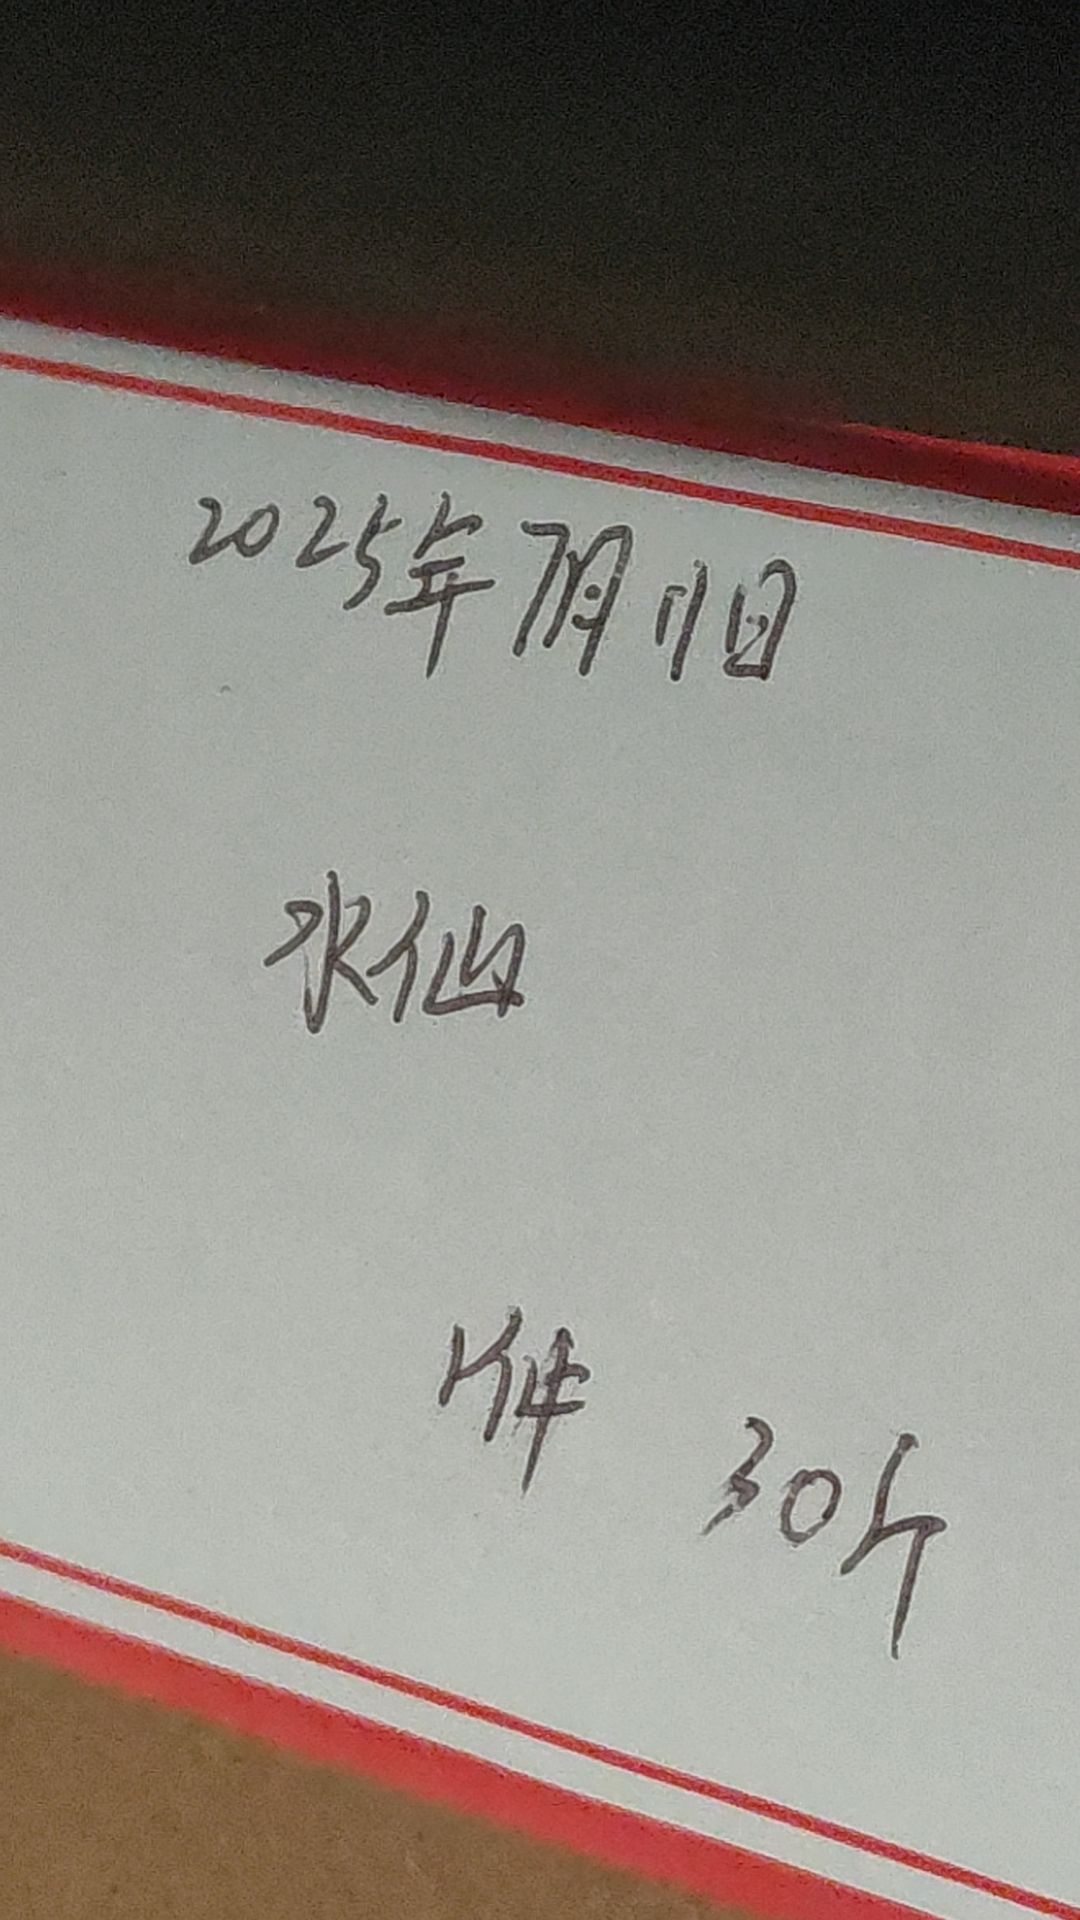 2025年7月11日
水仙
1件 30斤